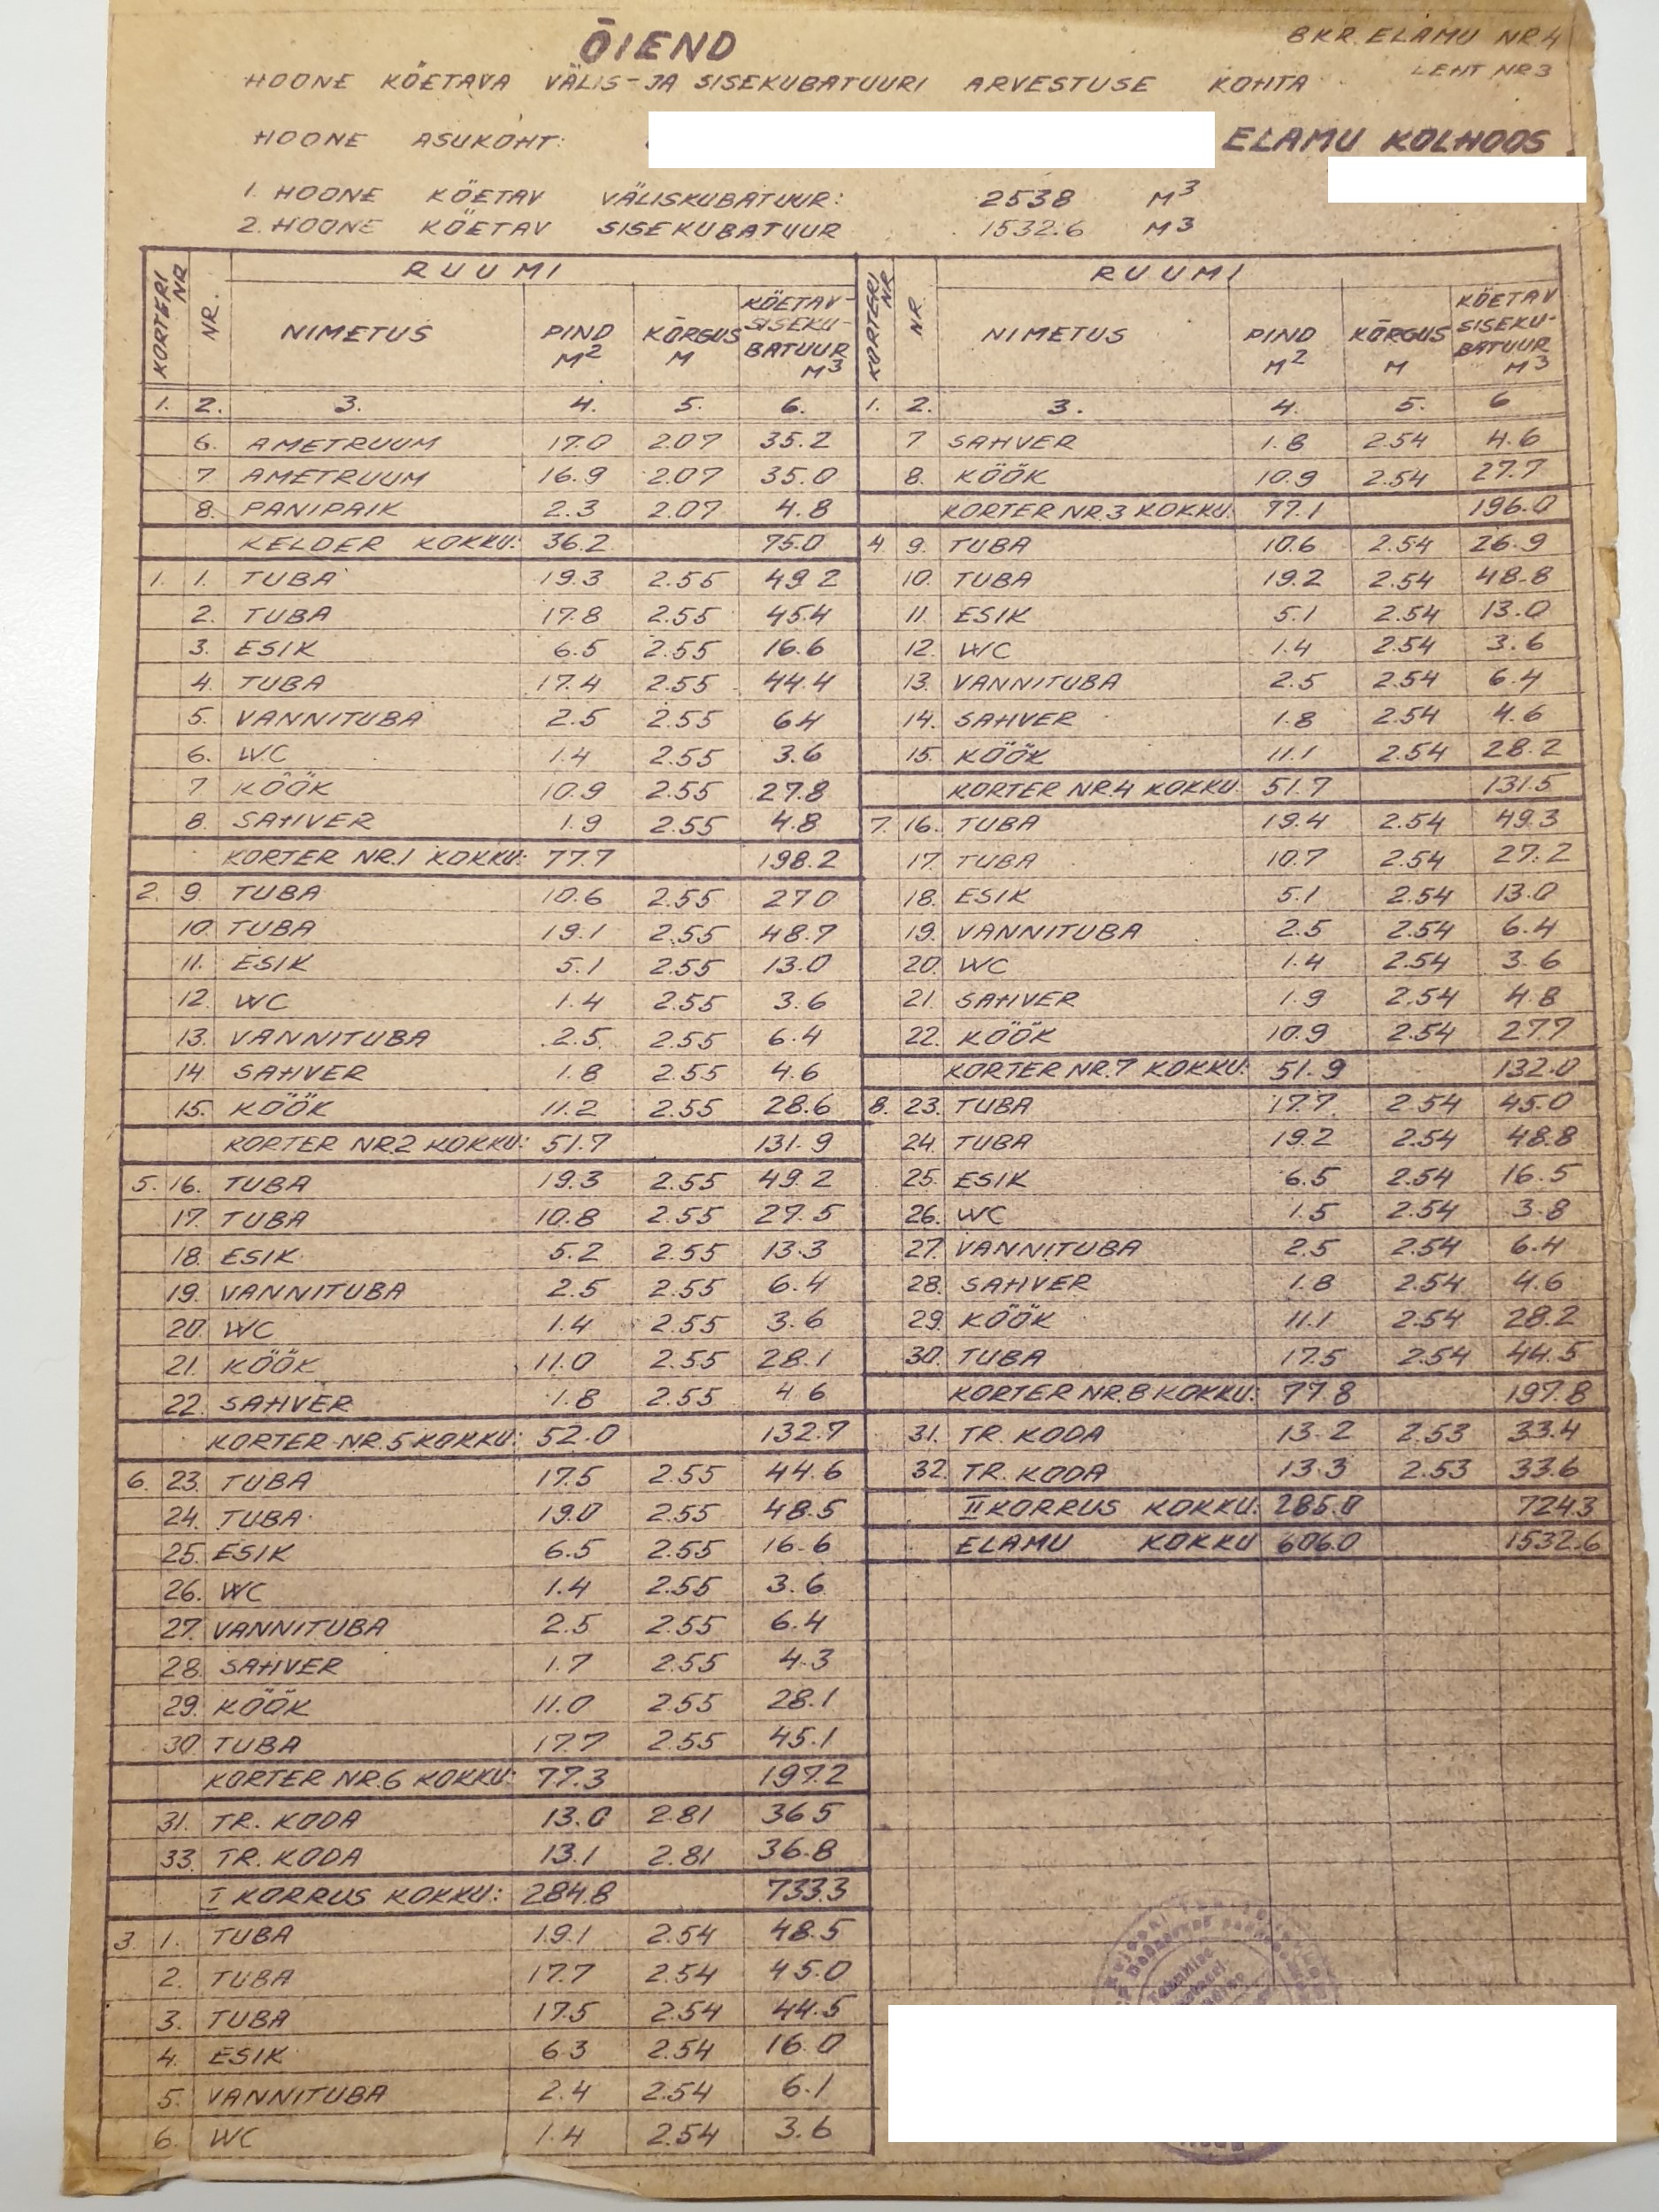 ÕIEND
8 KR. ELAMU NR.4
LEHT NR3
HOONE KÖETAVA VÄLIS-JA SISEKUBATUURI ARVESTUSE KOHTA
HOONE ASUKOHT: ELAMU KOLHOOS
1. HOONE KÖETAV VÄLISKUBATUUR: 2538 M3
2. HOONE KÖETAV SISEKUBATUUR 1532.6 M3
KORTERI NR NR. RUUMI
NIMETUS PIND M2 KÕRGUS M KÖETAV SISEKU-BATUUR M3
1. 2. 3. 4. 5. 6.
6. AMETRUUM 17.0 2.07 35.2
7 AMETRUUM 16.9 2.07 35.0
8. PANIPAIK 2.3 2.07 4.8
KELDER KOKKU: 36.2 75.0
1. 1. TUBA 19.3 2.55 49 2
2. TUBA 17.8 2.55 45.4
3. ESIK 6.5 2.55 16.6
4. TUBA 17.4 2.55 44.4
5. VANNITUBA 2.5 2.55 6.4
6. WC 1.4 2.55 3.6
7 KÖÖK 10.9 2.55 27.8
8. SAHVER 1.9 2.55 4.8
KORTER NR.1 KOKKU: 77.7 198.2
2. 9 TUBA 10.6 2.55 27 0
10. TUBA 19.1 2.55 48.7
11. ESIK 5.1 2.55 13.0
12. WC 1.4 2.55 3.6
13. VANNITUBA 2.5 2.55 6.4
14 SAHVER 1.8 2.55 4.6
15. KÖÖK 11.2 2.55 28.6
KORTER NR.2 KOKKU: 51.7 131.9
5. 16. TUBA 19.3 2.55 49.2
17. TUBA 10.8 2.55 27.5
18. ESIK 5.2 2.55 13.3
19. VANNITUBA 2.5 2.55 6.4
20. WC 1.4 2.55 3.6
21. KÖÖK 11.0 2.55 28.1
22. SAHVER 1.8 2.55 4 6
KORTER NR.5 KOKKU: 52.0 132.7
6. 23. TUBA 17.5 2.55 44.6
24. TUBA 19.0 2.55 48.5
25. ESIK 6.5 2.55 16.6
26. WC 1.4 2.55 3.6
27. VANNITUBA 2.5 2.55 6.4
28. SAHVER 1.7 2.55 4.3
29. KÖÖK 11.0 2.55 28.1
30. TUBA 17.7 2.55 45.1
KORTER NR.6 KOKKU: 77.3 197.2
31. TR. KODA 13.0 2.81 36 5
33. TR. KODA 13.1 2.81 36.8
I KORRUS KOKKU: 284.8 733.3
3. 1. TUBA 19.1 2.54 48.5
2. TUBA 17.7 2.54 45.0
3. TUBA 17.5 2.54 44.5
4. ESIK 6.3 2.54 16.0
5. VANNITUBA 2.4 2.54 6.1
6. WC 1.4 2.54 3.6
KORTERI NR NR. RUUMI
NIMETUS PIND M2 KÕRGUS M KÖETAV SISEKU-BATUUR M3
1. 2. 3. 4. 5. 6
7 SAHVER 1.8 2.54 4.6
8. KÖÖK 10.9 2.54 27.7
KORTER NR.3 KOKKU: 77.1 196.0
4. 9. TUBA 10.6 2.54 26.9
10. TUBA 19.2 2.54 48.8
11. ESIK 5.1 2.54 13.0
12. WC 1.4 2.54 3.6
13. VANNITUBA 2.5 2.54 6.4
14. SAHVER 1.8 2.54 4.6
15. KÖÖK 11.1 2.54 28.2
KORTER NR.4 KOKKU 51.7 131.5
7. 16. TUBA 19.4 2.54 49.3
17. TUBA 10.7 2.54 27.2
18. ESIK 5.1 2.54 13.0
19. VANNITUBA 2.5 2.54 6.4
20. WC 1.4 2.54 3.6
21. SAHVER 1.9 2.54 4.8
22. KÖÖK 10.9 2.54 27.7
KORTER NR.7 KOKKU: 51.9 132.0
8. 23. TUBA 17.7 2.54 45.0
24. TUBA 19.2 2.54 48.8
25. ESIK 6.5 2.54 16.5
26. WC 1.5 2.54 3.8
27. VANNITUBA 2.5 2.54 6.4
28. SAHVER 1.8 2.54 4.6
29. KÖÖK 11.1 2.54 28.2
30. TUBA 17.5 2.54 44.5
KORTER NR.8 KOKKU: 77.8 197.8
31. TR. KODA 13.2 2.53 33.4
32. TR. KODA 13.3 2.53 33.6
II KORRUS KOKKU: 285.0 724.3
ELAMU KOKKU 606.0 1532.6